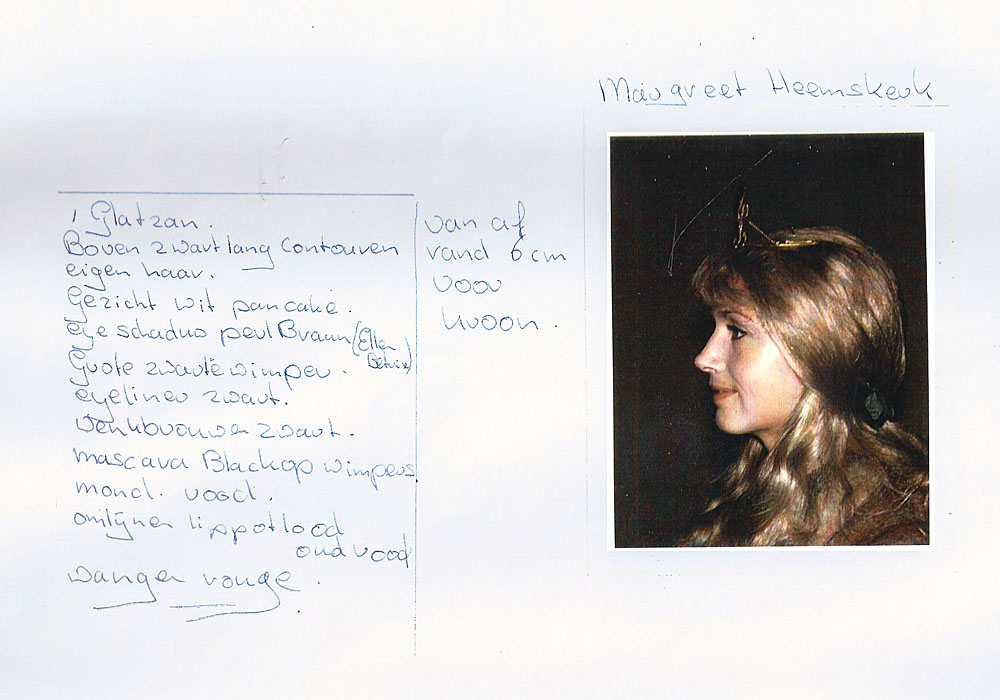 Margreet Heemskerk
1 Glatzan.
Boven zwart lang contouren
eigen haar.
Gezicht wit pancake.
eye schaduw perl Braun (Ellen
Betrix)
Grote zwarte wimper.
eyeliner zwart.
Wenkbrouwen zwart.
mascara Black op wimpers.
mond. rood.
omlijnen lippotlood
oud rood
wangen rouge.
van af
rand 6 cm
voor
kroon.